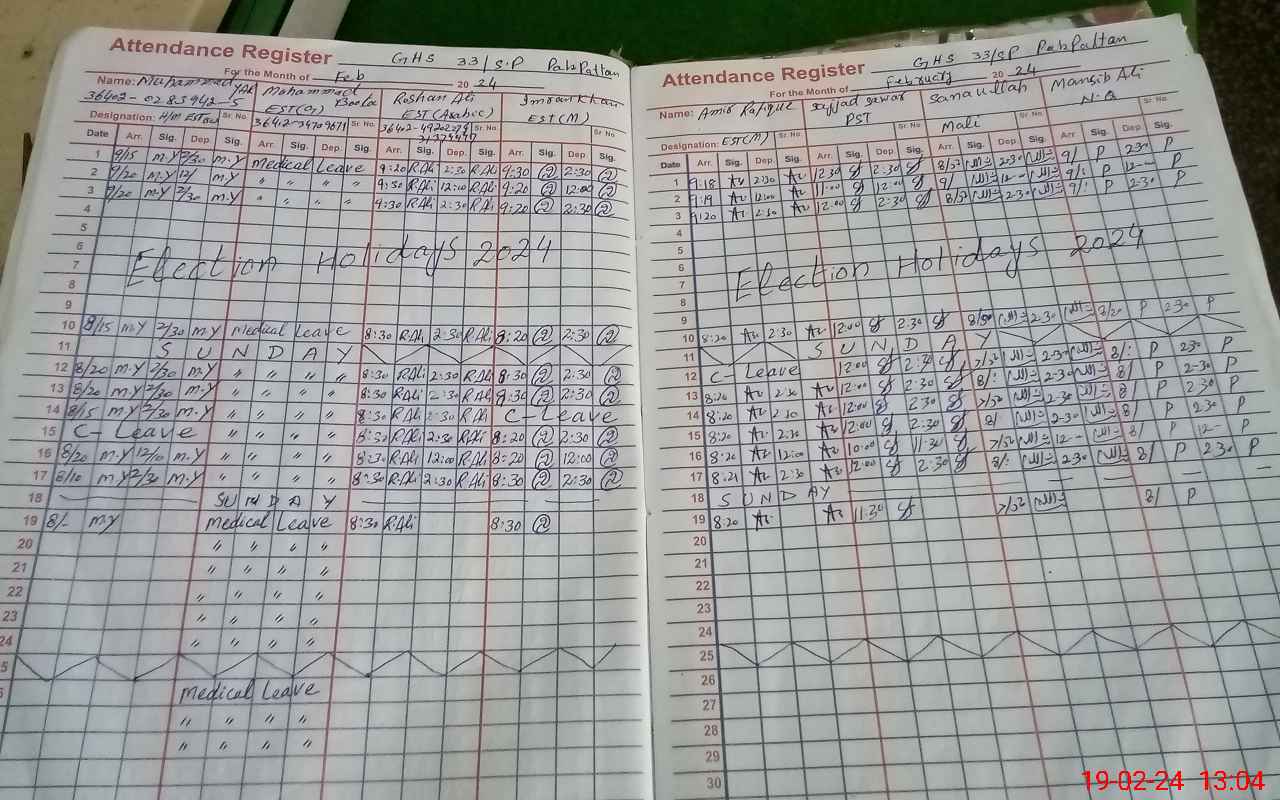 Attendance Register GHS 33/S.P PakPattan
For the Month of Feb 2024
Name: Muhammad Mohammad Roshan Ali Imran Khan
36402-0283942-5 EST(Arabic) EST(M)
Designation: Sr. No. Sr. No. Sr. No. Sr. No.
Date Arr. Sig. Dep. Sig. Arr. Sig. Dep. Sig. Arr. Sig. Dep. Sig. Arr. Sig. Dep Sig.
1 9/15 M.Y 2/30 M.Y Medical Leave 9:20 R.Ali 2:30 R.Ali 9:30 2:30
2 9/15 M.Y 12/ M.Y " " " " 9:30 R.Ali 12:00 R.Ali 9:20 12:00
3 9/20 M.Y 2/30 M.Y " " " " 9:30 R.Ali 2:30 R.Ali 9:20 2:30
4
5
6 Election Holidays 2024
7
8
9
10 8/15 M.Y 2/30 M.Y Medical Leave 8:30 R.Ali 2:30 R.Ali 8:20 2:30
11 S U N D A Y
12 8/20 M.Y 2/30 M.Y " " " " 8:30 R.Ali 2:30 R.Ali 8:30 2:30
13 8/20 M.Y 2/30 M.Y " " " " 8:30 R.Ali 2:30 R.Ali 8:30 2:30
14 8/15 M.Y 2/30 M.Y " " " " 8:30 R.Ali 2:30 R.Ali C-Leave
15 C-Leave " " " " 8:30 R.Ali 2:30 R.Ali 8:20 2:30
16 8/20 M.Y 12/10 M.Y " " " " 8:30 R.Ali 12:00 R.Ali 8:20 12:00
17 8/10 M.Y 2/30 M.Y " " " " 8:30 R.Ali 2:30 R.Ali 8:30 2:30
18 SUNDAY
19 8/- M.Y Medical Leave 8:30 R.Ali 8:30
20 " " " "
21 " " " "
22 " " " "
23 " " " "
24 " " " "
Medical Leave
" " " "
" " " "
Attendance Register GHS 33/SP PakPattan
For the Month of February 2024
Name: Amir Rafique Sajjad Sarwar Sanaullah Mansib Ali
Designation: EST(M) Sr. No. PST Sr. No. Mali Sr. No. N.Q Sr. No.
Date Arr. Sig. Dep. Sig. Arr. Sig. Dep. Sig. Arr. Sig. Dep. Sig. Arr. Sig. Dep. Sig.
1 9:18 2:30 12:30 2:30 8/52 2:30 9/ P 2:30 P
2 9:19 12:00 11:00 12:00 9/ 12-- 9/: P 12-- P
3 9:20 2:30 12:00 2:30 8/52 2-30 9/: P 2-30 P
4
5
6 Election Holidays 2024
7
8
9
10 8:20 2:30 12:00 2:30 8/50 2:30 8/20 P 2:30 P
11 S U N D A Y
12 C-Leave 12:00 2:30 7/52 2-30 8/: P 2:30 P
13 8:20 2:30 12:00 2:30 8/: 2-30 8/ P 2-30 P
14 8:20 2:30 12:00 2:30 7/52 2-30 8/ P 2:30 P
15 8:20 2:30 12:00 2:30 8/ 2-30 8/ P 2:30 P
16 8:20 12:00 10:00 11:30 7/52 12-- 8/ P 12- P
17 8:21 2:30 12:00 2:30 8/: 2-30 8/ P 2:30 P
18 SUNDAY
19 8:20 11:30 7/52 8/ P
20
21
22
23
24
25
26
27
28
29
30
19-02-24 13:04